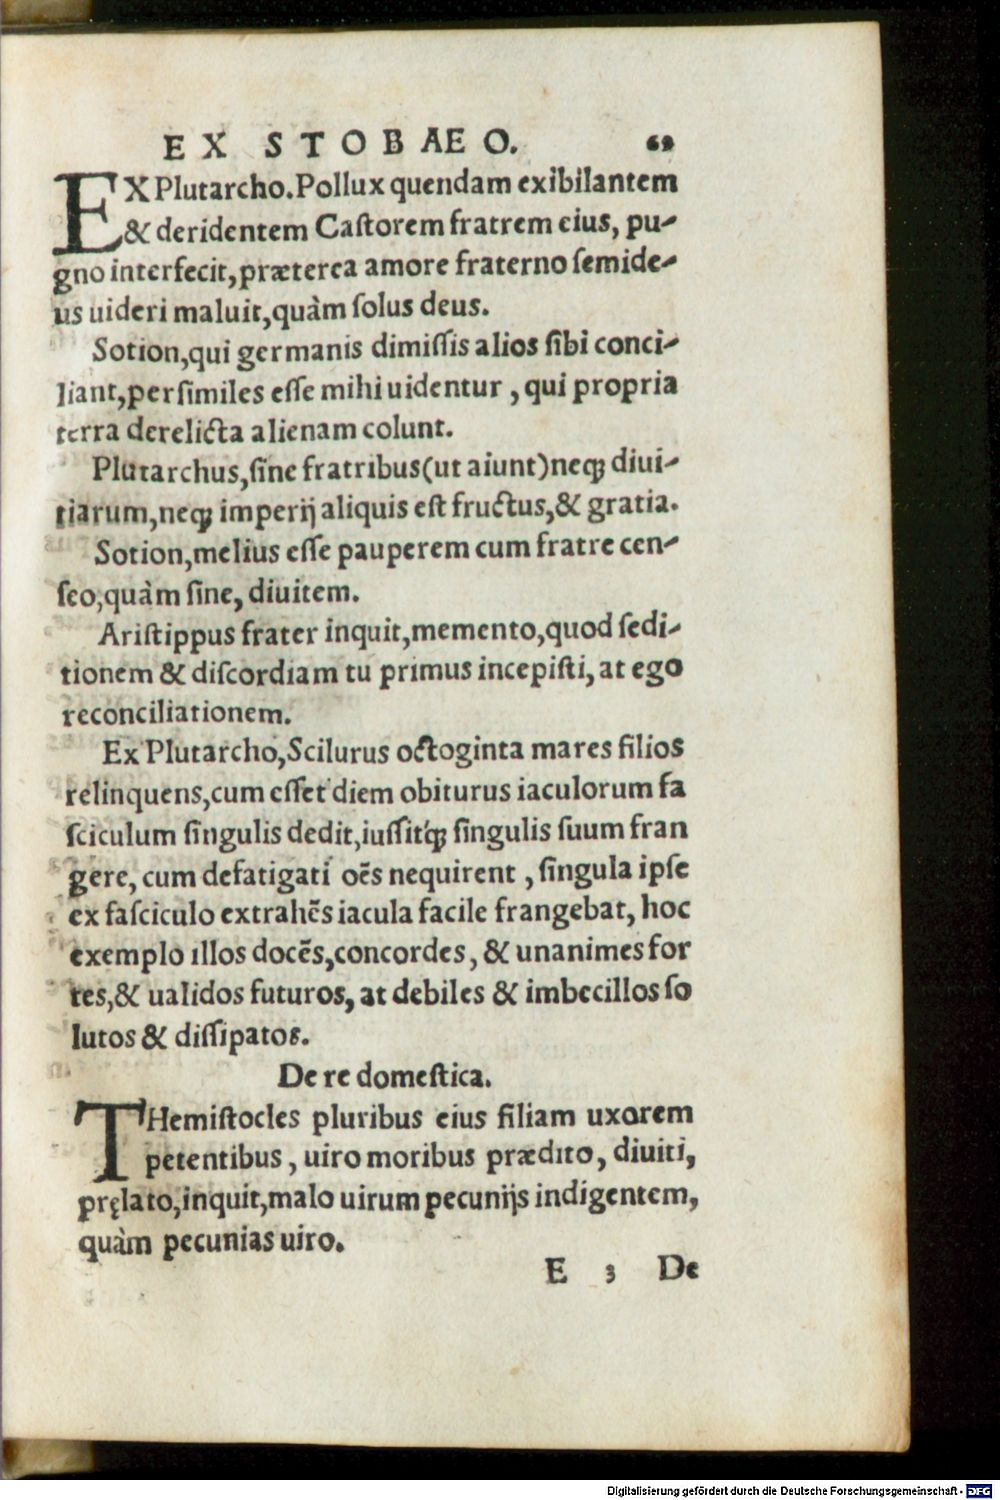 EX STOBAEO. 69
EX Plutarcho. Pollux quendam exibilantem
& deridentem Castorem fratrem eius, pu-
gno interfecit, præterea amore fraterno semide-
us uideri maluit, quàm solus deus.
Sotion, qui germanis dimissis alios sibi conci-
liant, persimiles esse mihi uidentur, qui propria
terra derelicta alienam colunt.
Plutarchus, sine fratribus (ut aiunt) neq; diui-
tiarum, neq; imperij aliquis est fructus, & gratia.
Sotion, melius esse pauperem cum fratre cen-
seo, quàm sine, diuitem.
Aristippus frater inquit, memento, quod sedi-
tionem & discordiam tu primus incepisti, at ego
reconciliationem.
Ex Plutarcho, Scilurus octoginta mares filios
relinquens, cum esset diem obiturus iaculorum fa
sciculum singulis dedit, iussitq́; singulis suum fran
gere, cum defatigati oẽs nequirent, singula ipse
ex fasciculo extrahẽs iacula facile frangebat, hoc
exemplo illos docẽs, concordes, & unanimes for
tes, & ualidos futuros, at debiles & imbecillos so
lutos & dissipatos.
De re domestica.
THemistocles pluribus eius filiam uxorem
petentibus, uiro moribus prædito, diuiti,
pręlato, inquit, malo uirum pecunijs indigentem,
quàm pecunias uiro.
E 3 De
Digitalisierung gefördert durch die Deutsche Forschungsgemeinschaft - DFG